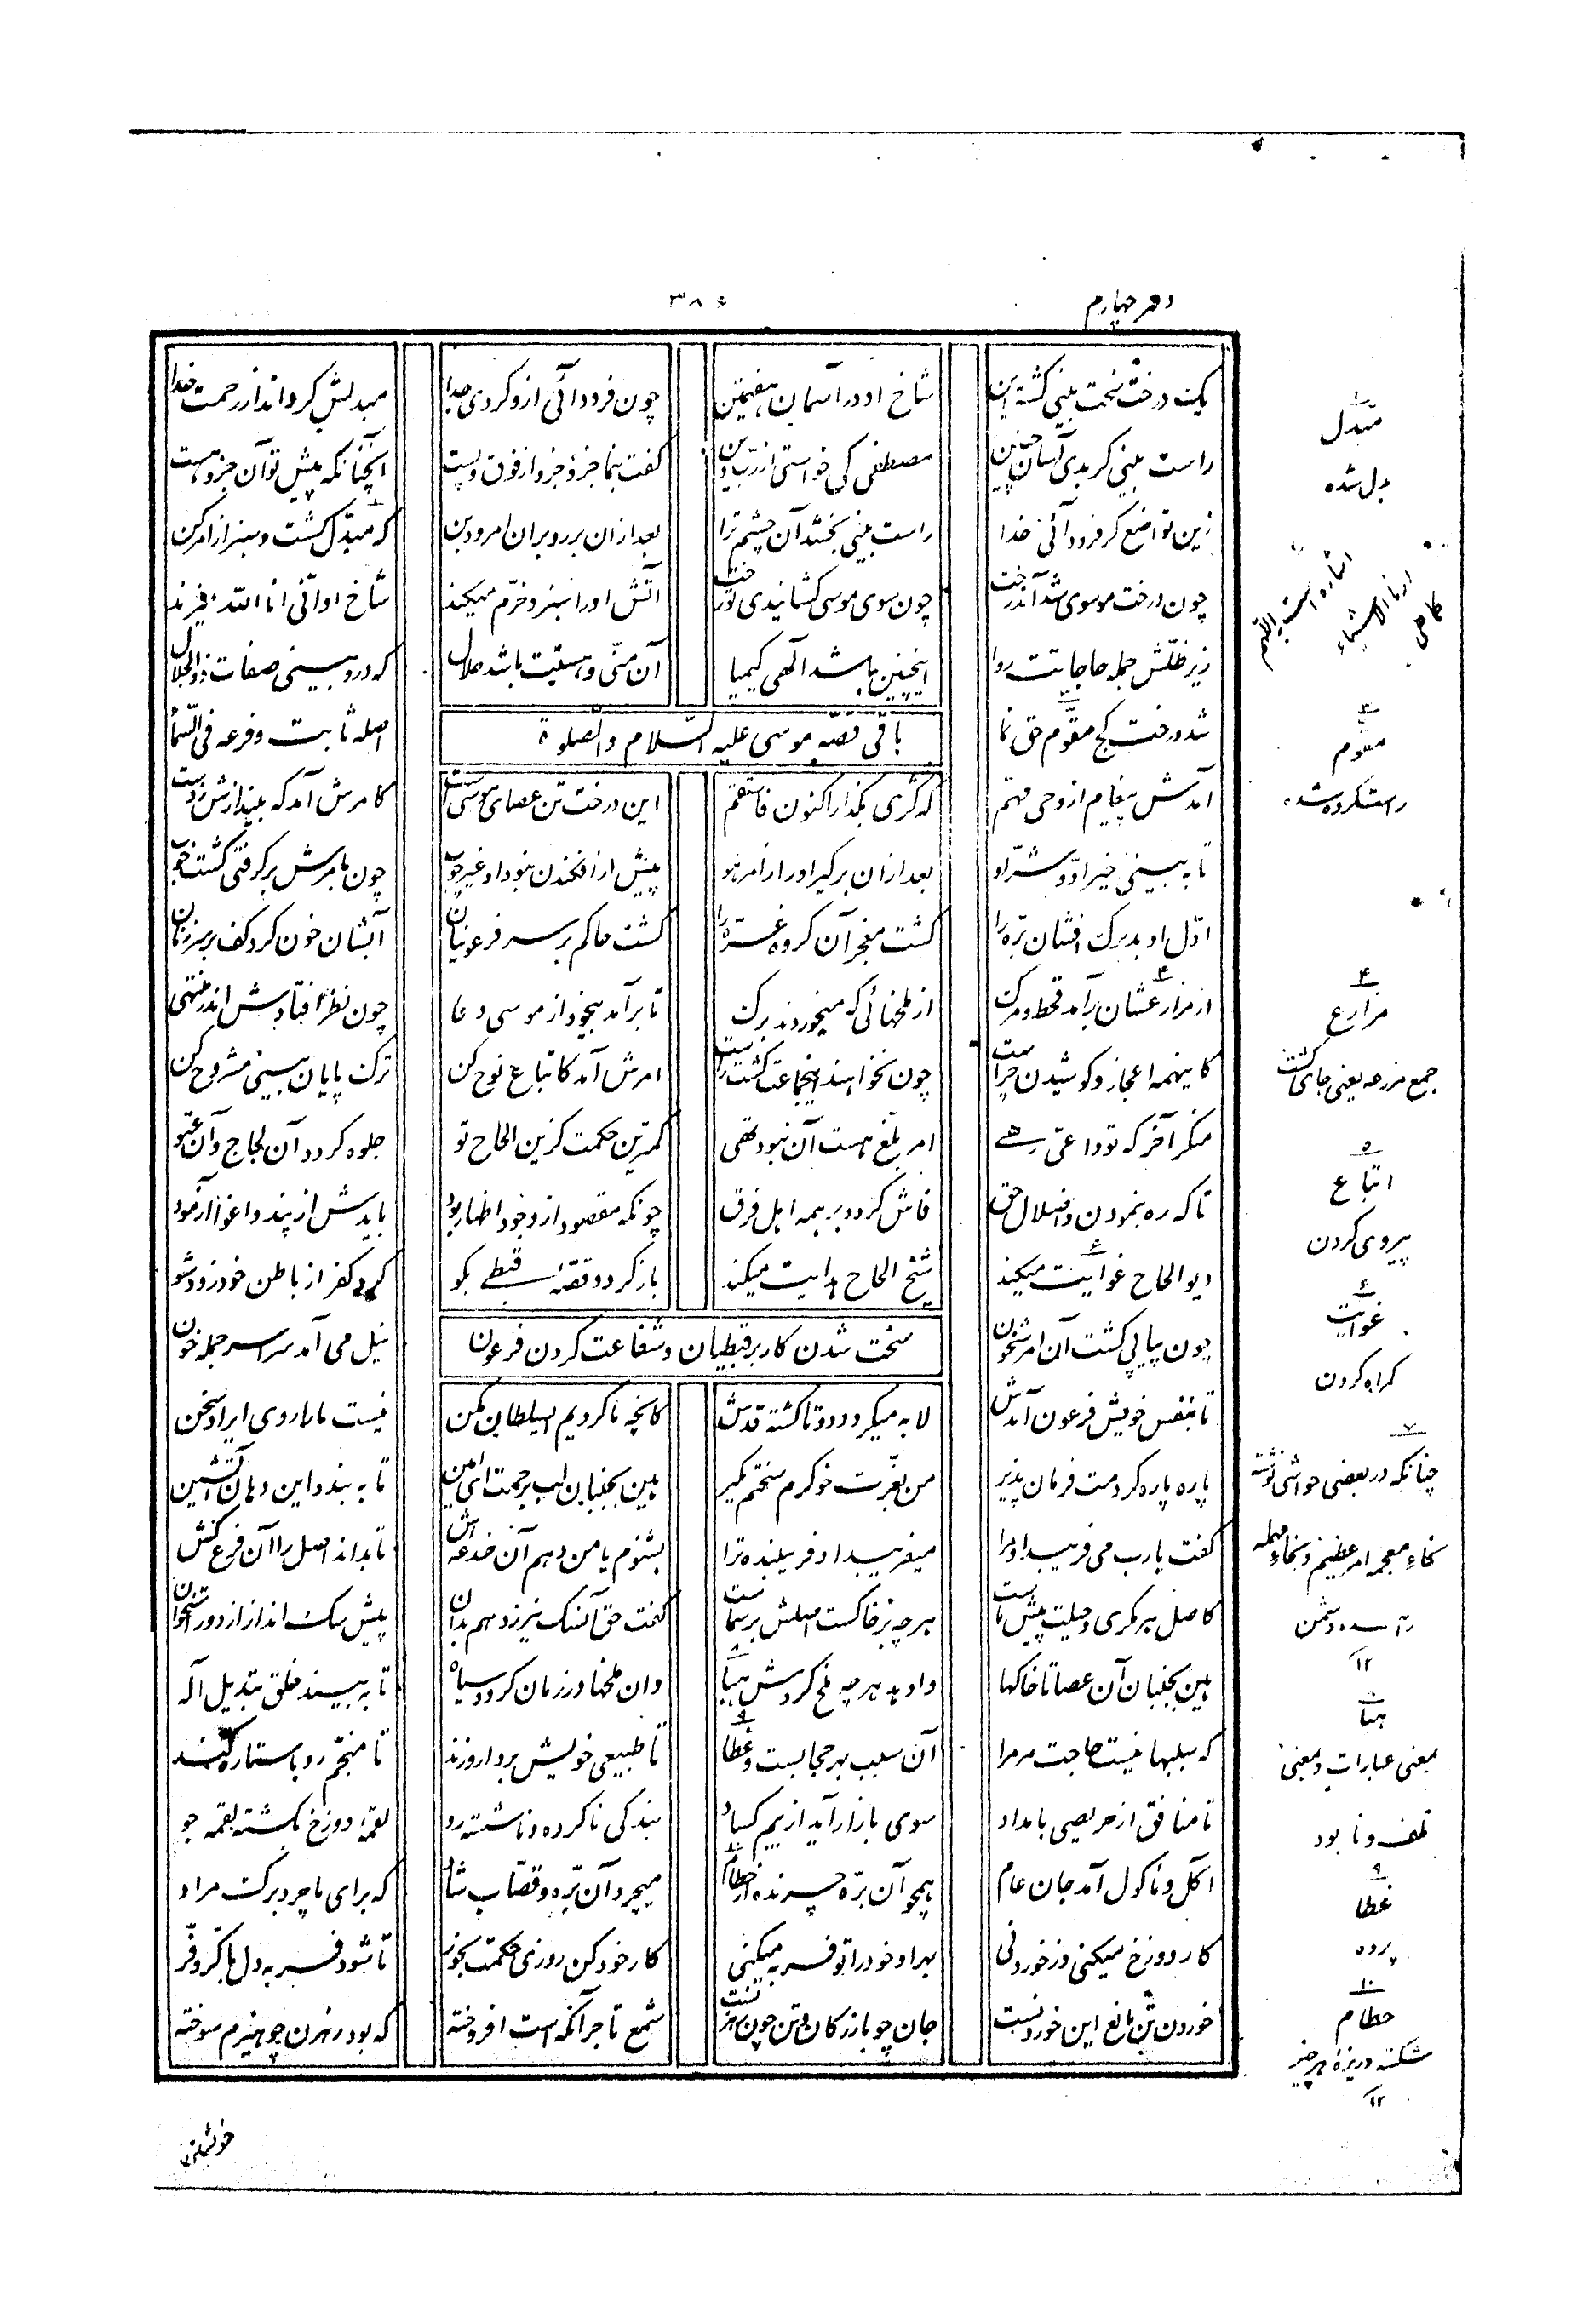 دفتر چهارم
۳۸۶
یک درخت بخت بینی گشته این شاخ او در آسمان هفتمین چون فرود آئی ازو گردی جدا مبدلش گرداند از رحمت خدا
راست بینی گر بدی آسان چنین مصطفی کی خواستی از رب دین گفت بنما جزو جزو از فوق و پست آنچنانکه پیش تو آن جزو هست
زین تواضع که فرود آئی خدا راست بینی بخشد آن چشم ترا بعد از ان بر رو بران امرودبن که مبدّل گشت و سبز از امر کن
چون درخت موسوی شد آن درخت چون سوی موسی کشانیدی تو رخت آتش او را سبز و خرّم میکند شاخ او انّی انا اللّه میزند
زیر ظلّش جمله حاجاتت روا اینچنین باشد الهی کیمیا آن منّی و هستیت باشد حلال که درو بینی صفات ذوالجلال
شد درخت کج مقوّم حق نما اصله ثابت و فرعه فی السّما
باقی قصّه موسی علیه السّلام والصّلوة
آمدش پیغام از وحی مهم که کژی بگذار اکنون فاستقم این درخت تن عصای موسی است کامرش آمد که بیندازش ز دست
تا به بینی خیر او و شرّ او بعد ازان برگیر او را ز امر هو پیش از افکندن نبود او غیر چوب چون بامرش برگرفتی گشت خوب
اوّل او بد برگ افشان برّه را گشت معجز آن گروه غرّه را گشت حاکم بر سر فرعونیان آبشان خون کرد و کف بر سر زنان
از مزارعشان برآمد قحط و مرگ از ملخهائی که میخوردند برگ تا برآمد بیخود از موسی دعا چون نظر افتادش اندر منتهی
کاینهمه اعجاز و کوشیدن چراست چون نخواهند اینجماعت گشت راست امرش آمد کاتباع نوح کن ترک پایان بینی مشروح کن
منگر آخر که تو داعیّ رهی امر بلّغ هست آن نبود تهی کمترین حکمت کزین الحاح تو جلوه گردد آن لجاج و آن عتو
تا که ره بنمودن و اضلال حق فاش گردد بر همه اهل فرق چونکه مقصود از وجود اظهار بود بایدش از پند و اغوا آزمود
دیو الحاح غوایت میکند شیخ الحاح هدایت میکند باز گرد و قصّهٔ قبطی بگو گرد کفر از باطن خود زود شو
چون پیاپی گشت آن امر شخون نیل می آمد سراسر جمله خون
سخت شدن کار بر قبطیان و شفاعت کردن فرعون
تا بنفس خویش فرعون آمدش لابه میکرد و دوتا گشته قدش کانچه ما کردیم ای سلطان مکن نیست ما را روی ایراد سخن
پاره پاره گردمت فرمان پذیر من بعزّت خوگرم سختم مگیر هین بجنبان لب برحمت ای امین تا به بندد این دهان آتشین
گفت یارب می فریبد او مرا میفریبد او فریبنده ترا بشنوم یا من دهم آن خدعه اش تا بداند اصل را آن فرع کش
کاصل هر مکری و حیلت پیش ماست هرچه بر خاکست اصلش بر سماست گفت حق آن سگ نیرزد هم بدان پیش سگ انداز از دور استخوان
هین بجنبان آن عصا تا خاکها وا دهد هرچه ملخ کردش هبا وان ملخها در زمان گردد سیاه تا به بیند خلق تبدیل اله
که سببها نیست حاجت مر مرا آن سبب بهر حجابست و غطا تا طبیعی خویش بر دارو زند تا منجّم رو باستاره کند
تا منافق از حریصی بامداد سوی بازار آید از بیم کساد بندگی ناکرده و ناشسته رو لقمهٔ دوزخ بگشته لقمه جو
آکل و مأکول آمد جان عام همچو آن برّه چرنده از حطام میچرد آن برّه و قصّاب شاد که برای ما چرد برگ مراد
کار دوزخ میکنی در خوردنی بهر او خود را تو فربه میکنی کار خود کن روزی حکمت بخور تا شود فربه دل با کرّ و فر
خوردن تن مانع این خوردنست جان چو بازرگان و تن چون رهزنست شمع تاجر آنگه است افروخته که بود رهزن چو هیزم سوخته
مبدّل
بدل شده
اشاره است به اللّهم
ارنا الاشیاء
کماهی
۳
مقوّم
راست کرده شده
۴
مزارع
جمع مزرعه یعنی جای کشت
۵
اتباع
پیروی کردن
۶
غوایت
گمراه کردن
۷
چنانکه در بعضی حواشی نوشته
بخاء معجمه امر عظیم و بحاء مهمله
۱۲
۸
هبا
بمعنی غبارات و بمعنی
تلف و نابود
۹
غطا
پرده
۱۰
حطام
شکسته و ریزهٔ هر چیز
۱۲